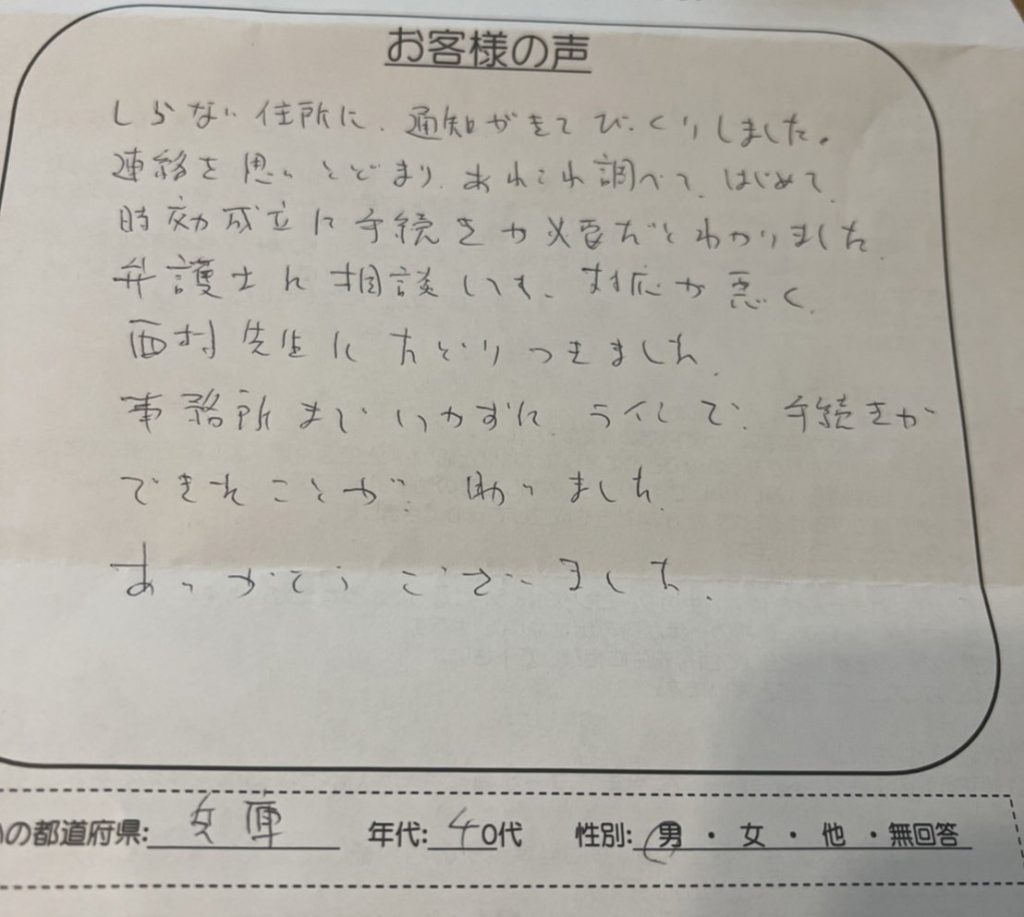 お客様の声
しらない住所に、通知がきてびっくりしました。
連絡を思いとどまり、あれこれ調べて、はじめて、
時効成立に手続きが必要だとわかりました。
弁護士に相談しても、対応が悪く、
西村先生にたどりつきました。
事務所までいかずに、ラインで、手続きが
できたことが、助りました。
ありがとうございました。
の都道府県: 兵庫 年代: 40代 性別: 男 ・ 女 ・ 他 ・ 無回答